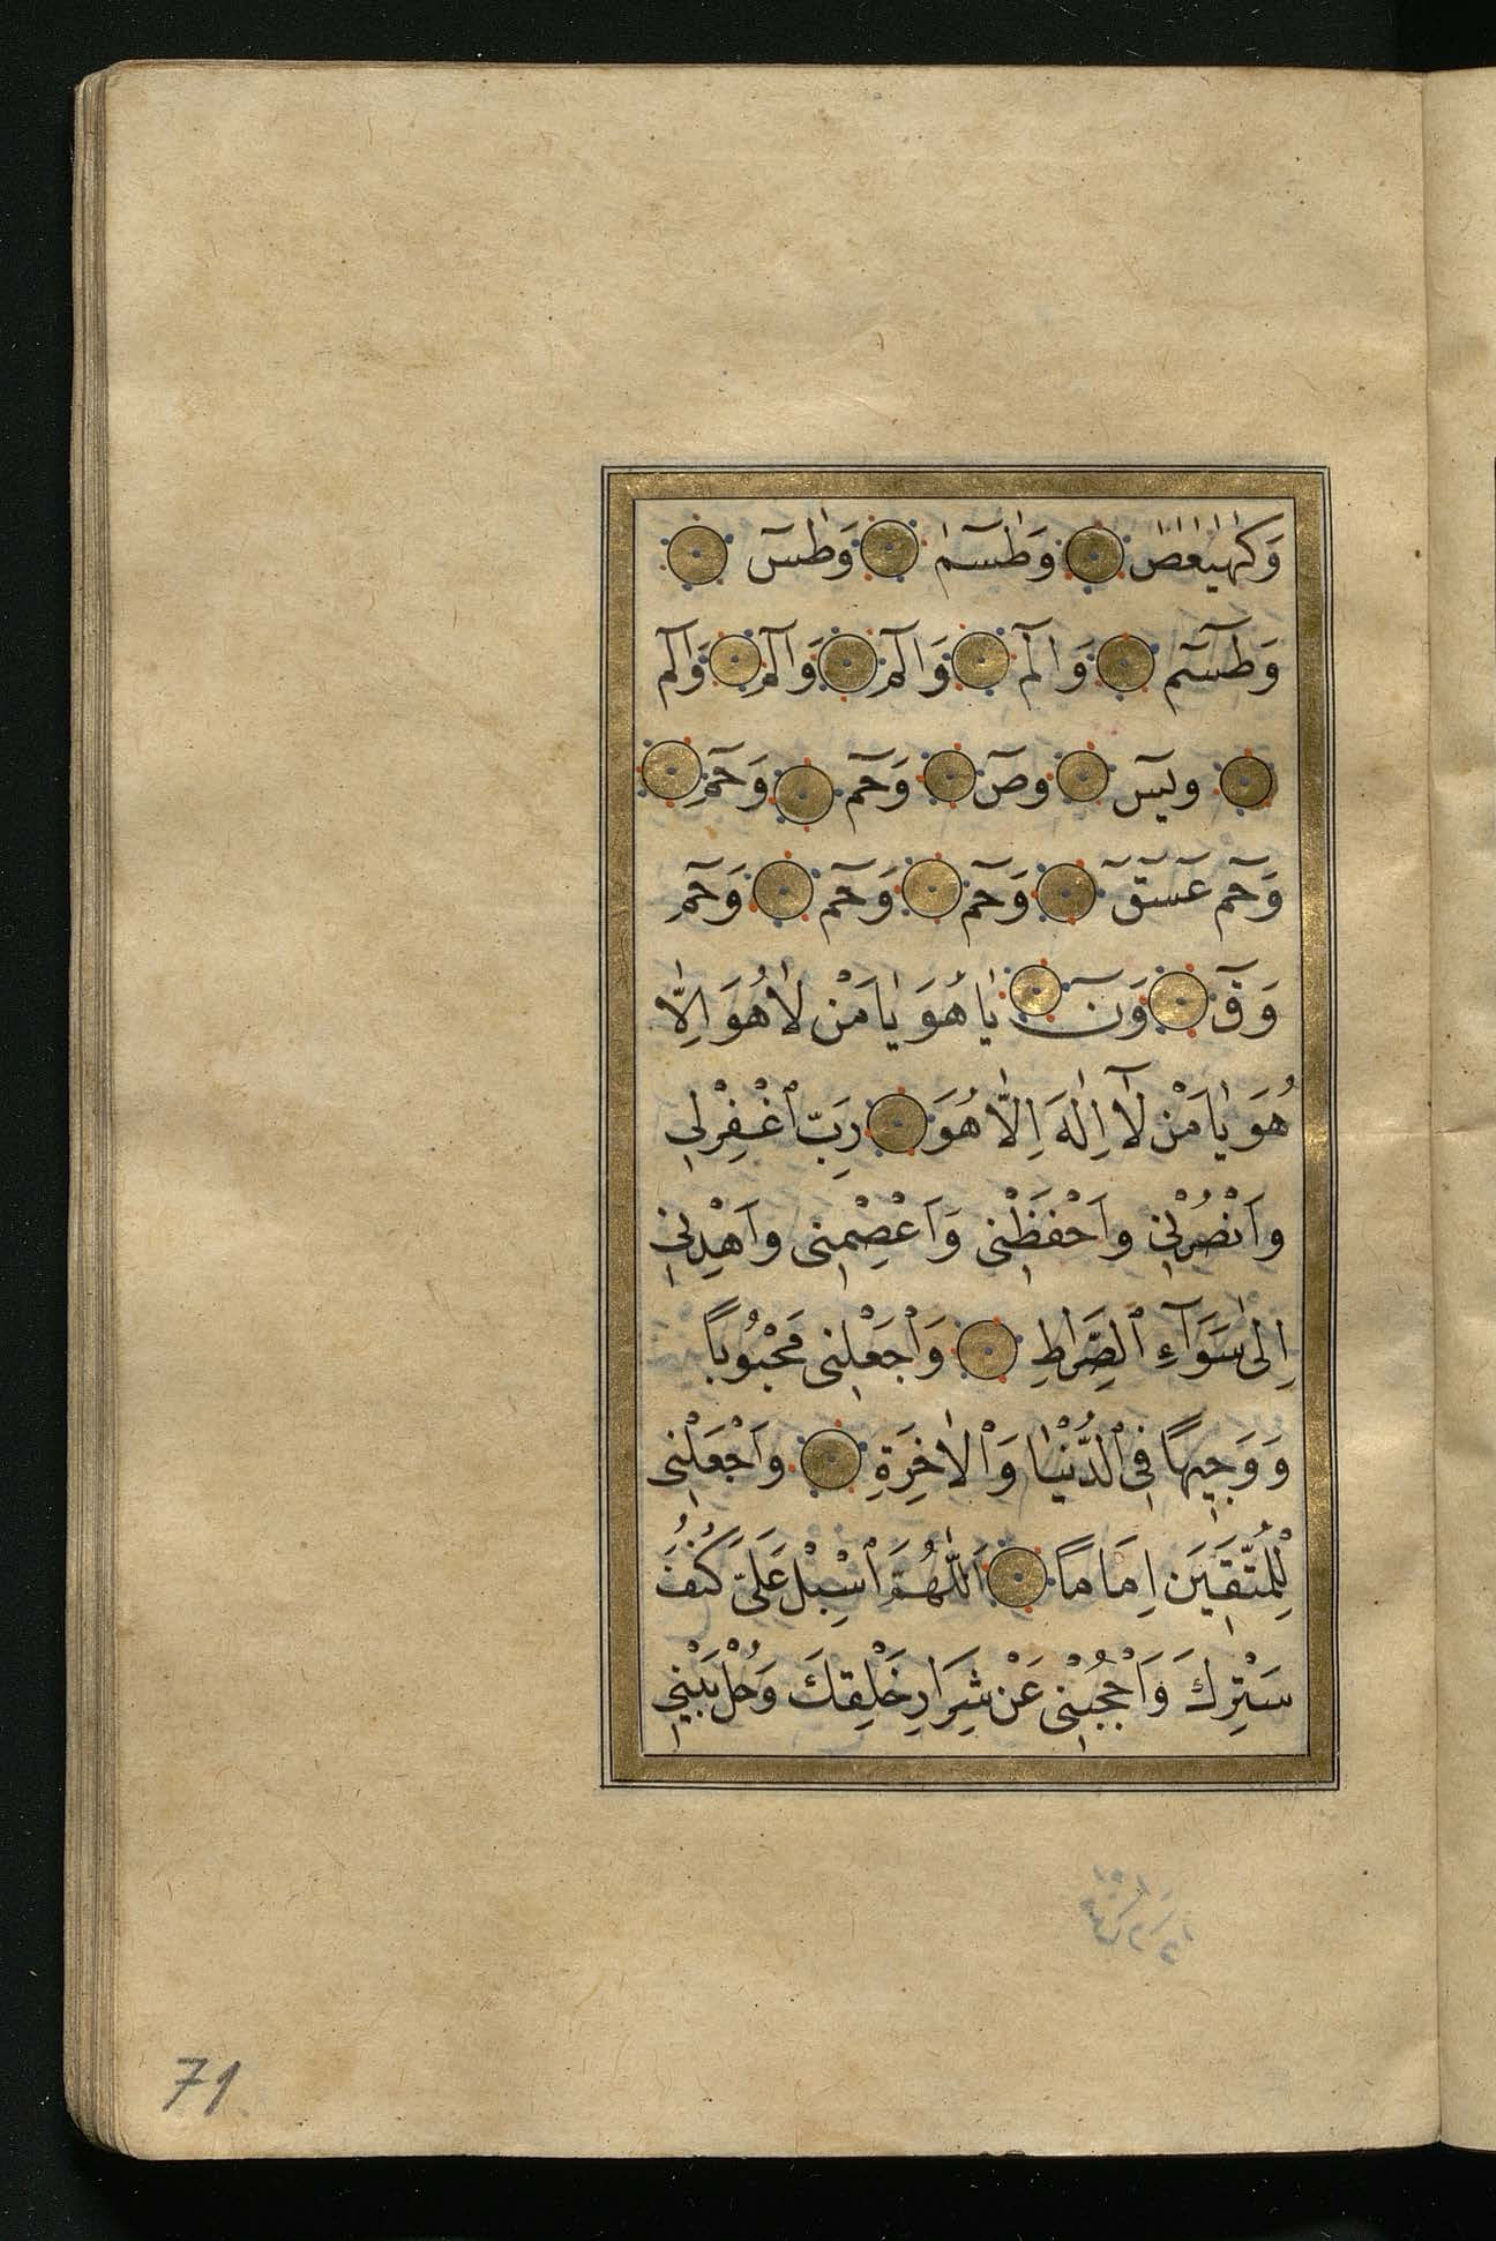 وَكٰهٰيٰعٰصٰ وَطٰسٓمٰ وَطٰسٓ
وَطٰسٓمٓ وَالٓمٓ وَالٓمٓ وَالٓمٓ وَالٓمٓ
ويٓسٓ وصٓ وَحٓمٓ وَحٓمٓ
وَحٓمٓ عٓسٓقٓ وَحٓمٓ وَحٓمٓ وَحٓمٓ
وَقٓ وَنٓ يٰا هُوَ يٰا مَنْ لٰا هُوَ اِلّٰا
هُوَ يٰا مَنْ لٰٓا اِلٰهَ اِلّٰا هُوَ رَبِّ ٱغْفِرْلٖي
وَانْصُرْنٖي وَاحْفَظْنٖي وَاعْصِمْنٖي وَاهْدِنٖي
اِلٰى سَوَآءِ ٱلصِّرٰاطِ وَٱجْعَلْنٖي مَحْبُوبًا
وَوَجٖيهًا فِى ٱلدُّنْيٰا وَٱلْاٰخِرَةِ وَاجْعَلْنٖي
لِلْمُتَّقٖينَ اِمَامًا اَللّٰهُمَّ ٱسْبِلْ عَلَىَّ كُنُفَ
سَتْرِكَ وَاحْجُبْنٖي عَنْ شِرَارِ خَلْقِكَ وَحُلْ بَيْنٖي
71